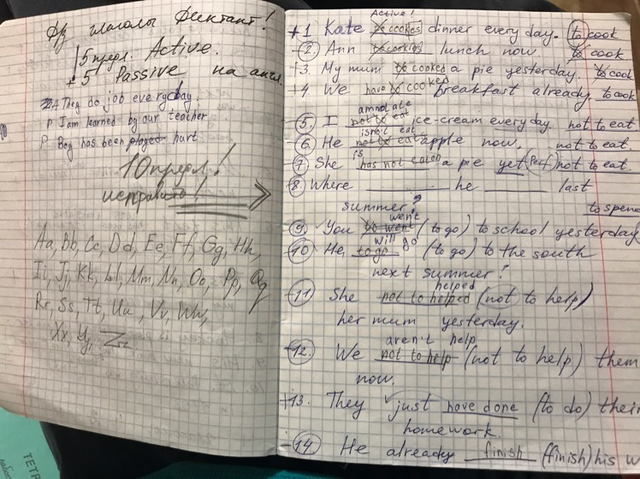 Фр глаголы Диктант!
15 предл. Active.
+ 5 Passive на англ
They do job everyday.
P I am learned by our teacher
P Boy has been played hurt
10 предл!
исправить!
Aa, Bb, Cc, Dd, Ee, Ff, Gg, Hh,
Ii, Jj, Kk, Ll, Mm, Nn, Oo, Pp, Qq
Rr, Ss, Tt, Uu, Vv, Ww,
Xx, Yy, Zz
Active!
+1 Kate to cookes dinner every day. to cook
2 Ann lunch now to cook
+3. My mum to cooked a pie yesterday. to cook
+4 We have to cooked breakfast already to cook
am not ate
5 I not to eat ice-cream everyday. not to eat
isn't eat
6 He not to eat apple now. not to eat.
is
7 She has not eated a pie yet (Perf) not to eat.
8 Where he last
summer? to spend
went
9. You to went (to go) to school yesterday
will go
10. He to go (to go) to the south
next summer!
helped
11 She not to helped (not to help)
her mum yesterday.
aren't help
12. We not to help (not to help) them
now.
+13. They just have done (to do) their
homework.
14. He already finish (finish) his w
TETR